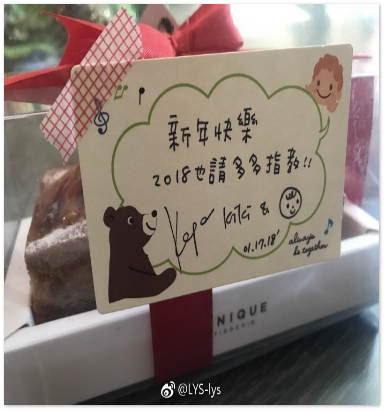 新年快樂
2018也請多多指教!!
kiki &
01.17.18'
always
be together
NIQUE
TISSERIE
@LYS-lys